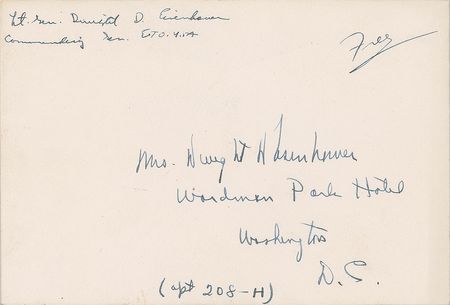 Lt. Gen. Dwight D. Eisenhower
Commanding Gen. ETO. USA
Free
Mrs. Dwight D Eisenhower
Wardman Park Hotel
Washington
D.C.
(apt 208-H)